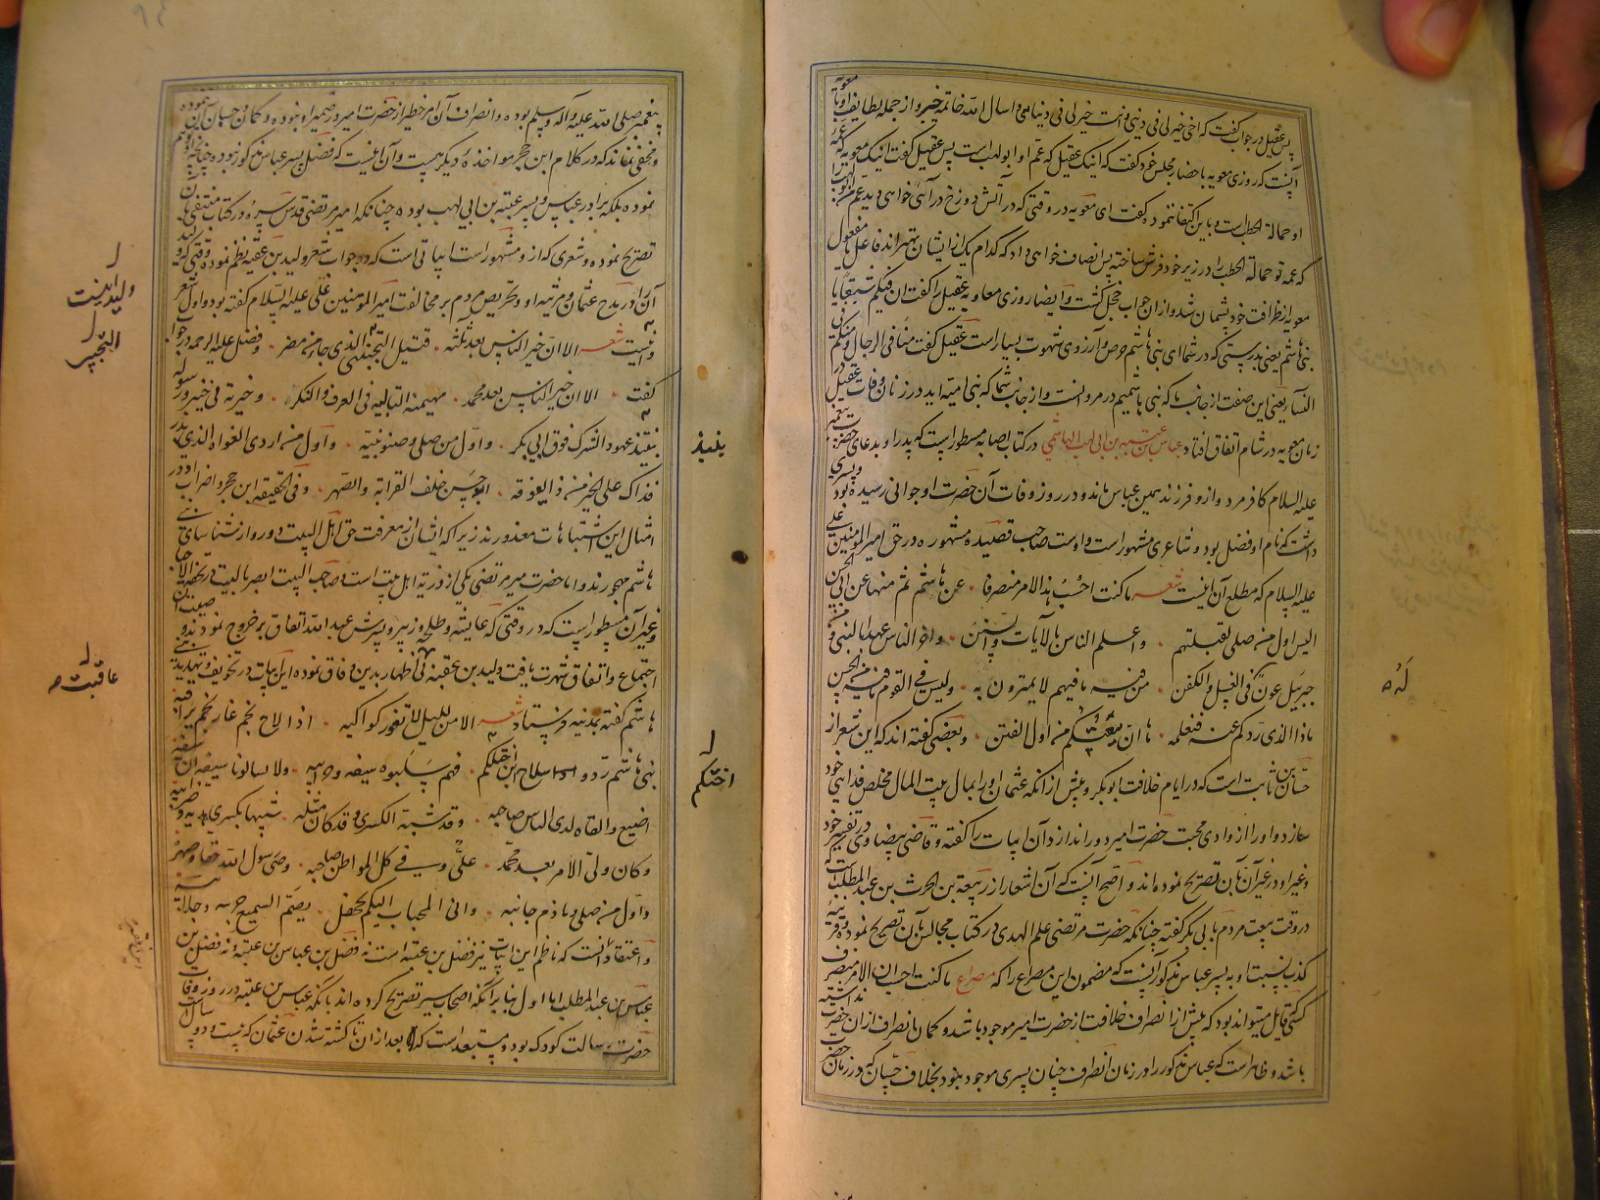 پس عقیل در جواب گفت که اخی خیر لی فی دینی و انت خیر لی فی دنیای و اسال الله خاتمة خیر و از جمله لطایف او با معویه
آنست که روزی معویه باحضار مجلس خود گفت که اینک عقیل که عم او ابولهب است پس عقیل گفت اینک معویه که عمه
او حمالة الحطب است و باین اکتفا ننموده گفت ای معویه در وقتی که در آتش دوزخ درآئی خواهی دید عم من ابولهب
که عمه تو حمالة الحطب را در زیر خود فرش ساخته پس انصاف خواهی داد که کدام یک از ایشان بهتراند فاعل یا مفعول
معویه از ظرافت خود پشیمان شد و از ان جواب خجل گشت و ایضا روزی معاویه عقیل را گفت ان فیکم شبقا یا
بنی هاشم یعنی بدرستی که در شما ای بنی هاشم حرص و آرزوی شهوت بسیار است عقیل گفت منا فی الرجال و منکم فی
النساء یعنی این صفت از جانب ما که بنی هاشمیم در مردانست و از جانب شما که بنی امیه اید در زنان و فات عقیل در
زمان معویه در شام اتفاق افتاد عباس بن عتبه بن ابی لهب الهاشمی در کتاب اصابه مسطور است که پدر او بدعای حضرت پیغمبر
علیه السلام کافر مرد و از و فرزند همین عباس ماند و در روز وفات آن حضرت او جوانی رسیده بود و پسری
داشت که نام او فضل بود و شاعری مشهور است و اوست صاحب قصیده مشهوره در حق امیر المؤمنین علی
علیه السلام که مطلع آن اینست شعر ما کنت احسب هذا الامر منصرفا عن هاشم ثم منها عن ابی الحسن
الیس اول من صلی لقبلتهم و اعلم الناس بالآیات والسنن و اخر الناس عهدا بالنبی و من
جبریل عون له فی الغسل والکفن من فیه ما فیهم لا یمترون به ولیس فی القوم ما فیه من الحسن
ماذا الذی ردکم عنه فنعلمه ها ان بیعتکم من اول الفتن و بعضی گفته اند که این شعر از
حسان بن ثابت است که در ایام خلافت ابوبکر و پیش از آنکه عثمان او را بمال بیت المال مخلص فدایی خود
سازد و او را از وادی محبت حضرت امیر دور اندازد آن ابیات را گفته و قاضی بیضاوی در تفسیر خود
و غیر او در غیر آن بان تصریح نموده اند و اصح آنست که آن اشعار از ربیعة بن الحرث بن عبد المطلب است که
در وقت بیعت مردم با ابی بکر گفته چنانکه حضرت مرتضی علم الهدی در کتاب مجالس بآن تصریح نموده و قرینه
کذب نسبت او به پسر عباس مذکور آنست که مضمون این مصراع را که مصراع ما کنت احسب ان الامر منصرف
کسی قایل میتواند بود که پیش از انصراف خلافت از حضرت امیر موجود باشد و گمان بانصراف از ان حضرت نداشته
باشد و ظاهر است که عباس مذکور را در زمان انصراف چنان پسری موجود نبود بخلاف حسان که در زمان حضرت
لهُ ص
پیغمبر صلی الله علیه و آله و سلم بوده و انصراف آن امر خطیر از حضرت امیر در ضمیر او نبوده و گمان حسان آن نموده
و مخفی نماند که در کلام ابن حجر مواخذهٔ دیگر هست و آن اینست که فضل پسر عباس مذکور نبوده چنانکه او توهم
نموده بلکه برادر عباس و پسر عتبه بن ابی لهب بوده چنانکه امیر مرتضی قدس سره در کتاب منتقی بان
تصریح نموده و شعری که از و مشهور است ابیاتی است که در جواب شعر ولید بن عقبه نظم نموده وقتی که ولید
آن را در مدح عثمان و مرثیه او و تحریص مردم بر مخالفت امیر المؤمنین علی علیه السلام گفته بود و اول شعر
و اینست شعر الا ان خیر الناس بعد ثلثه قتیل التجیبی الذی جاء من مضر و فضل علیه الرحمه در جواب
گفت الا ان خیر الناس بعد محمد مهیمنه التالیه فی العرف والنکر و خیرته فی خیبر و رسوله
بنبذ عهود الشرک فوق ابی بکر و اول من صلی و صنو نبیه و اول من اردی الغواة لدی بدر
فذاک علی الخیر من ذا یفوقه ابو حسن خلف القرابة والصهر و فی الحقیقه ابن حجر و اضراب او در
امثال این اشتباهات معذورند زیرا که ایشان از معرفت حق اهل البیت دور و از شناسای بنی
هاشم مهجورند و اما حضرت میر مرتضی یکی از ذریه اهل بیت است و صاحب البیت ابصر بالبیت
و غیر آن مسطور است که در وقتی که عایشه و طلحه و زبیر و پسرش عبد الله اتفاق بر خروج نمودند و
اجتماع و اتفاق شهرت یافت ولید بن عقبه نیز اظهار بدین وفاق نموده این ابیات در تخویف و تهدید بنی
هاشم گفته بمدینه فرستاد شعر الا من للیل لا تغور کواکبه اذا لاح نجم غار نجم یراقبه
بنی هاشم ردوا سلاح ابن اختکم فهم سلبوه سیفه و حرائبه ولا تسالونا سیفه ان سیفه
اضیع والقاه لدی الناس صاحبه و قد شبه الکسری و قد کان مثله شبیها بکسری هدیه و ضرائبه
و کان ولی الامر بعد محمد علی و فی کل المواطن صاحبه وصی رسول الله حقا و صهره
و اول من صلی و ما ذم جانبه و انی لمجتاب الیکم بجحفل یصم السمیع جرسه و جلائبه
و اعتقاد آنست که ناظم این ابیات نیز فضل بن عتبه است نه فضل بن عباس بن عتبه و نه فضل بن
عباس بن عبد المطلب اما اول بنا بر آنکه اصحاب سیر تصریح کرده اند بانکه عباس بن عتبه در روز وفات
حضرت رسالت کودک بود و مستبعد است که بعد از ان تا کشته شدن عثمان که بیست و دو سال
ولید اینست
التجیبی
بنبذ
عاقبت ص
اختکم